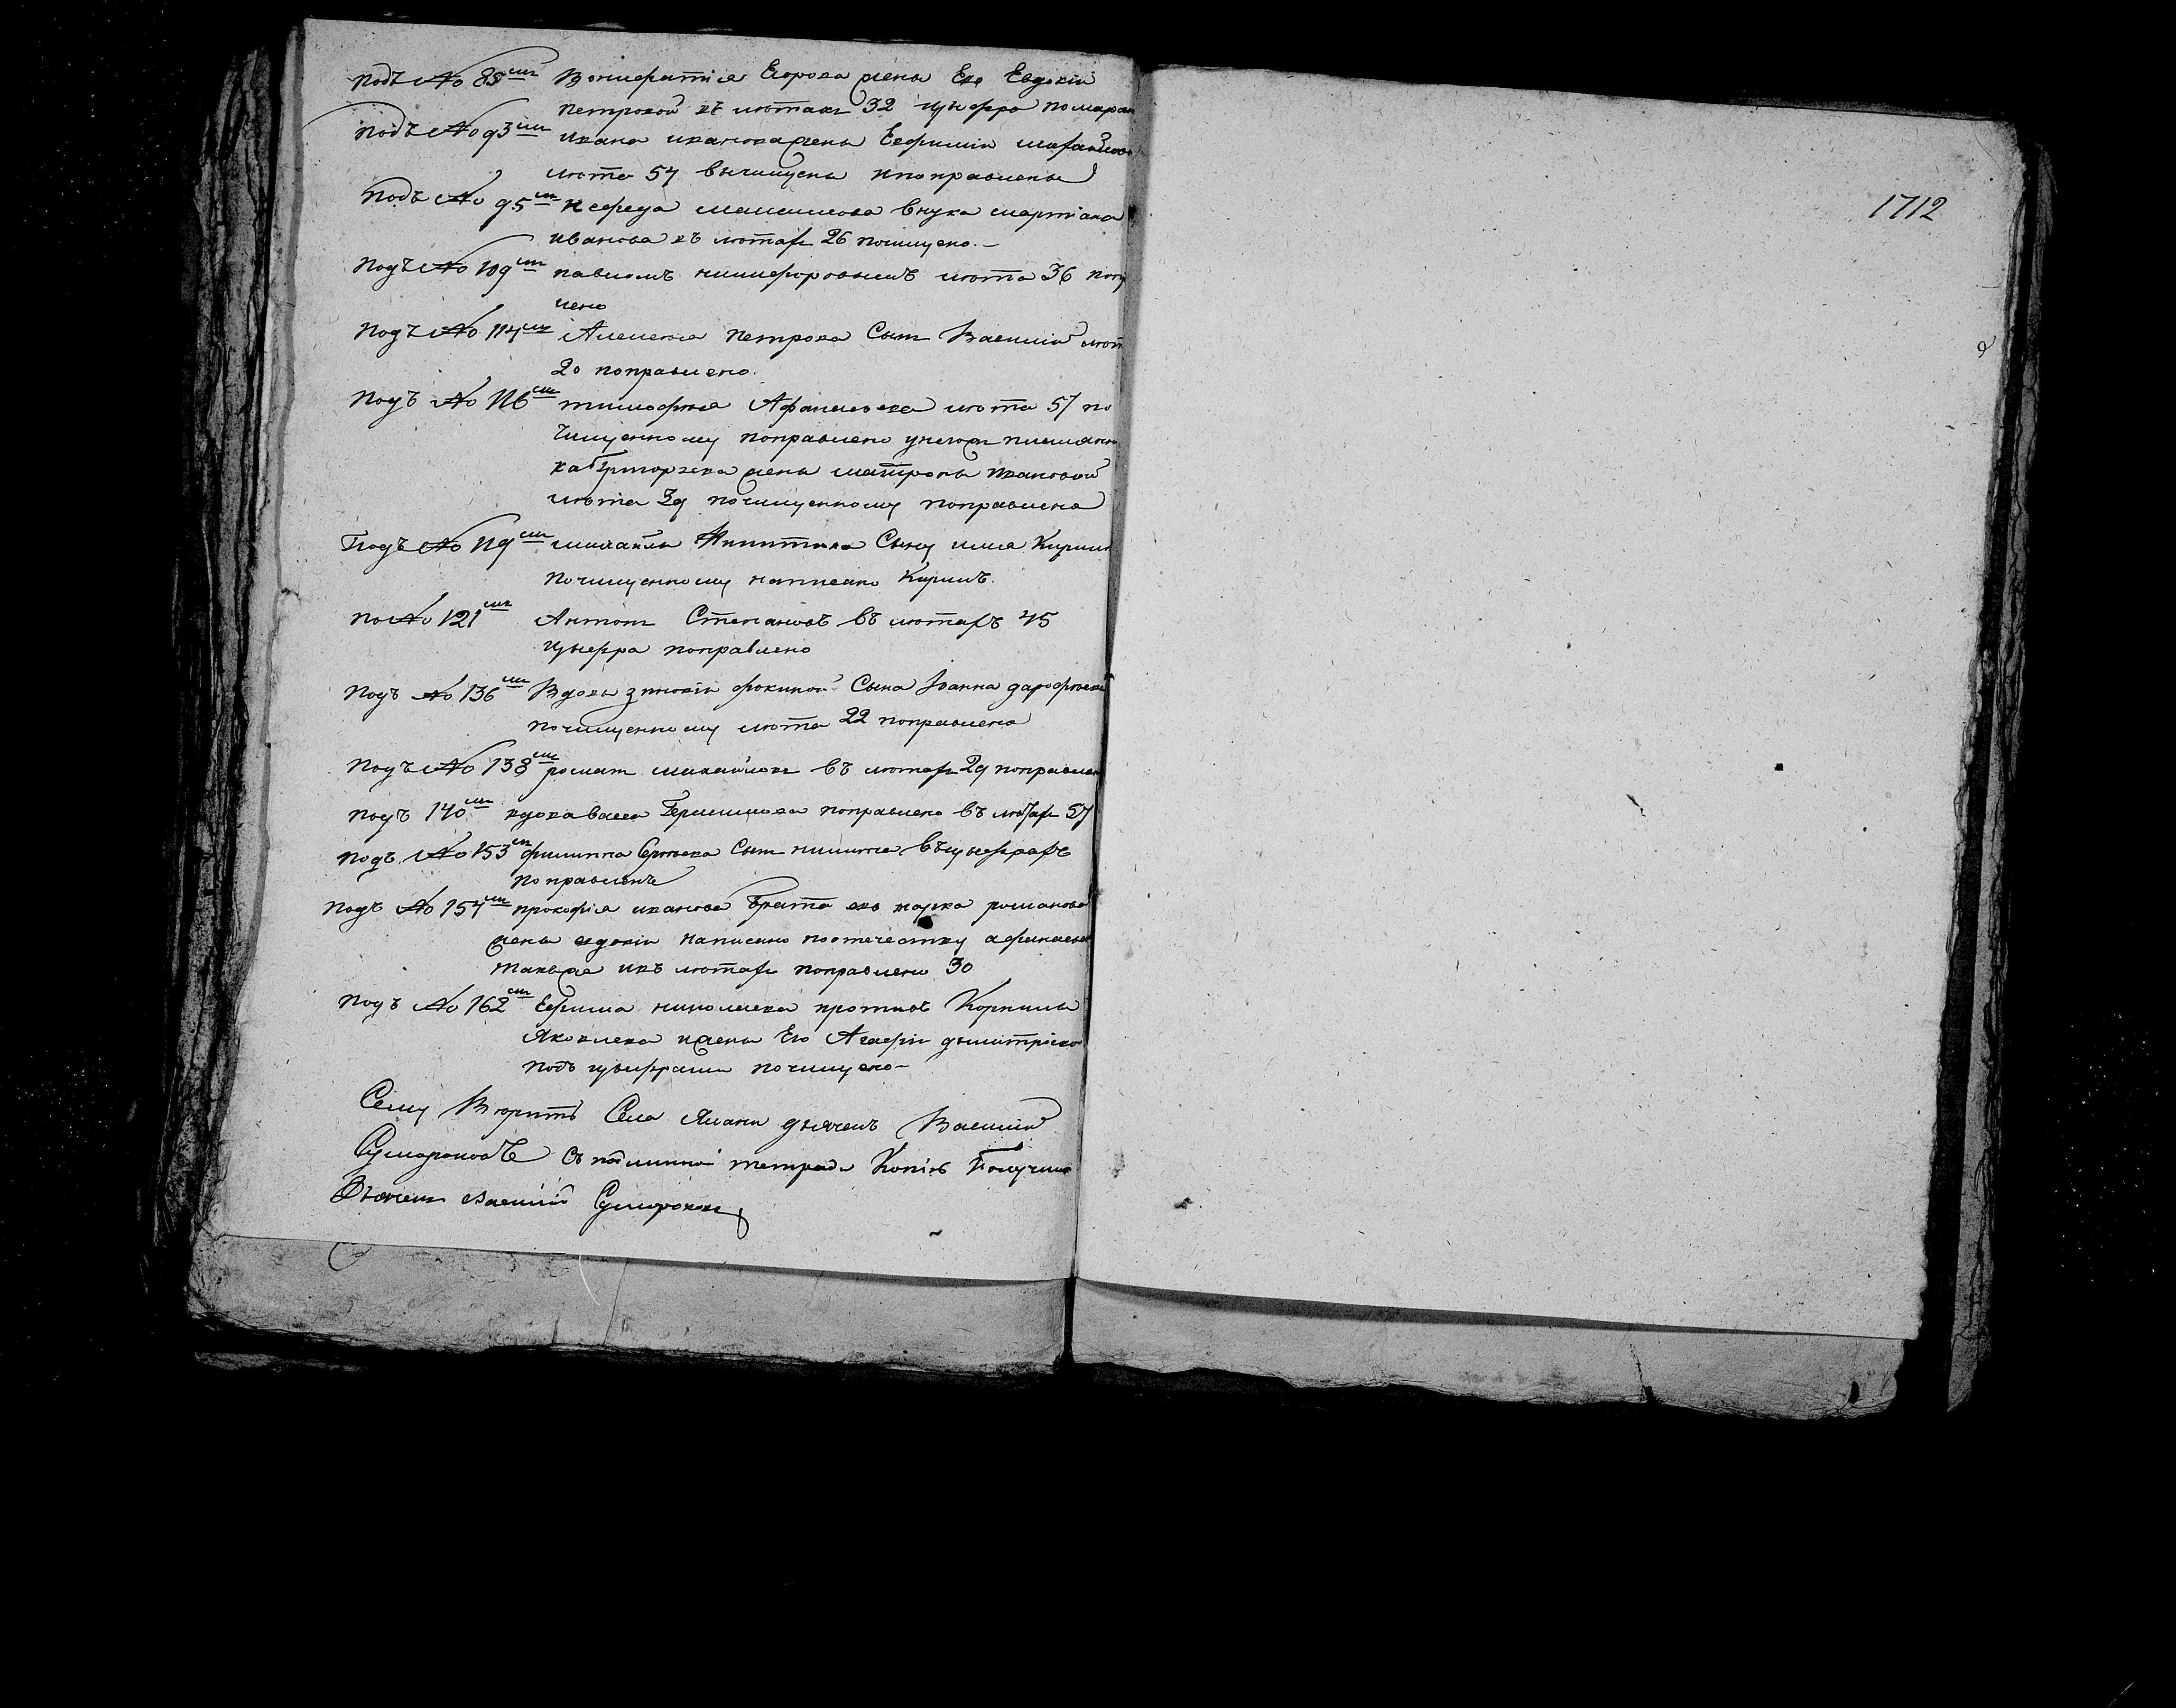 Подъ № 85мъ Вонифатія Егорова жены Его Евдокіи
Петровой въ лѣтахъ 32 цыфра помаран
Подъ № 93мъ Ивана Иванова жены Евфиміи
лѣта 54 вычищены и поправлены
Подъ № 95мъ Нефеда Максимова внука Мартіана
Иванова въ лѣтахъ 26 почищено.
Подъ № 109мъ Павломъ Никифоровымъ лѣта 36 почи
щено
Подъ № 114мъ Алексея Петрова Сынъ Василій лѣт
20 поправлено.
Подъ № 116мъ Тимофея Афанасьева лѣта 57 по
чищенному поправлено у негожъ племянни
ка Григорьева жены Матроны Ивановой
лѣта 39 почищенному поправлена
Подъ № 119мъ Михайлы Никитина Сыну имя Кирил
почищенному написано Кирилъ.
По № 121мъ Антонъ Степановъ въ лѣтахъ 45
цыфра поправлено
Подъ № 136мъ Вдовы Зиновіи Фокиной Сына Іоанна Дарофеева
почищенному лѣта 22 поправлена
Подъ № 138мъ Романъ Михайловъ въ лѣтахъ 29 поправлен
Подъ 140мъ вдова Васса Герасимова поправлено въ лѣтахъ 57
Подъ № 153мъ Филиппа Сергѣева Сынъ Никита въ цыфрахъ
поправленъ
Подъ № 154мъ Прокофія Иванова брата его Марка Романова
жены Евдокіи написано поотечеству Афанасьев
такъже ивъ лѣтахъ поправлено 30
Подъ № 162мъ Ефима Николаева противъ Корнилы
Яковлева и жены Его Агафіи Дымитріево
подъ цыфрами почищено
Сему Вѣрить Села дьячекъ Василій
Сумароковъ Съ подлинной тетради Копію Получилъ
Дьячекъ Василій Сумароковъ
1712